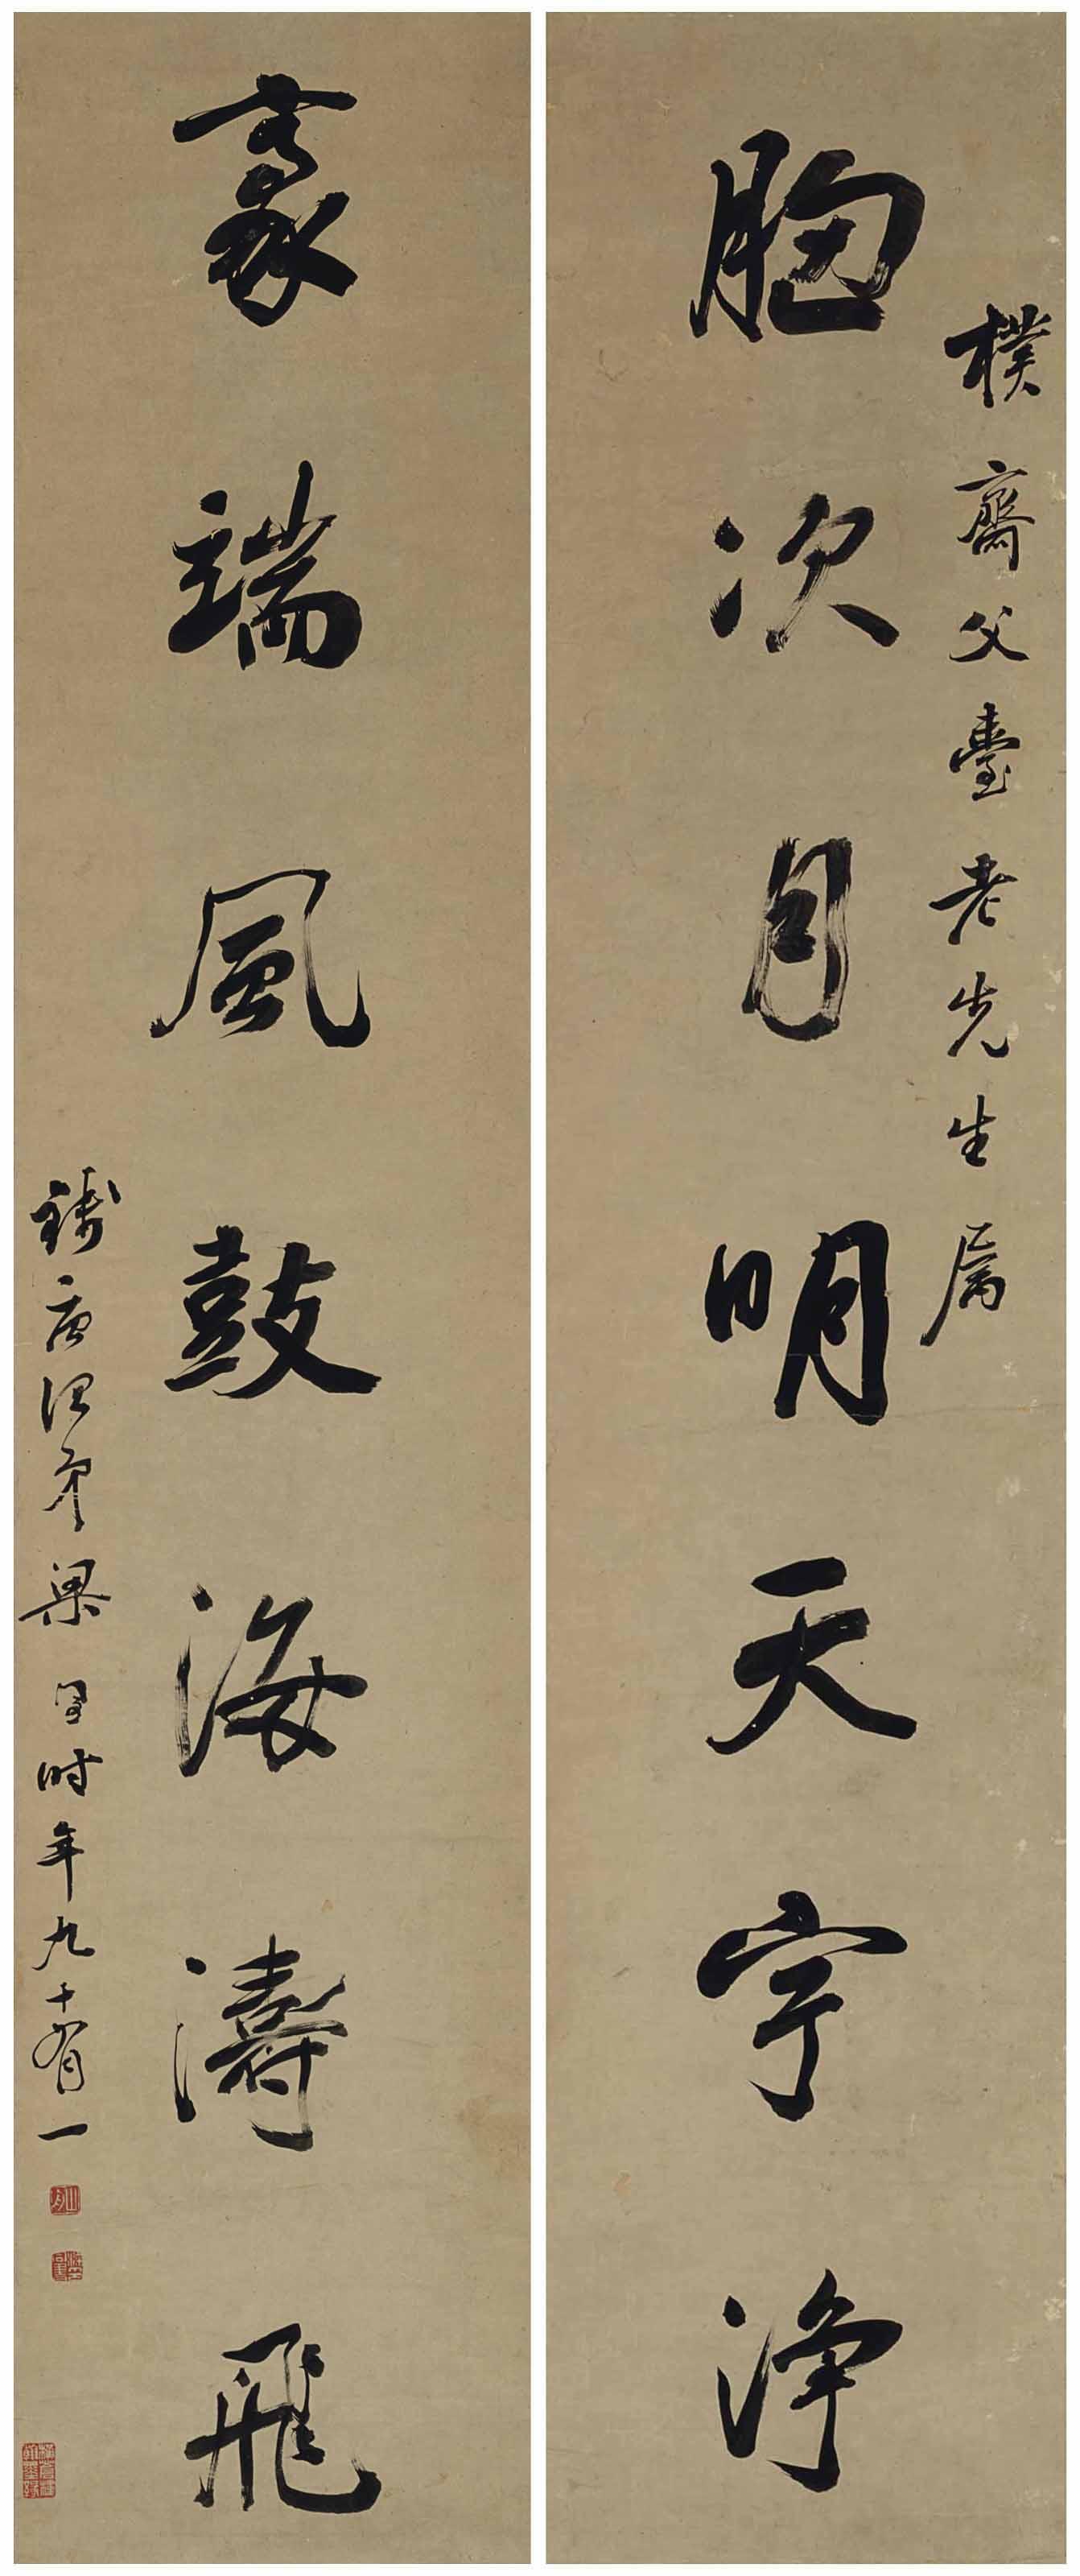 樸齋父臺老先生屬
胸次月明天宇淨
豪端風鼓海濤飛
錢唐治弟梁同書時年九十有一
山舟